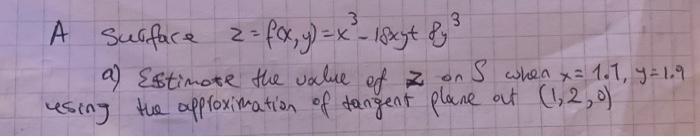 A Surface z = f(x,y) = x³ - 18xy + 8y³
a) Estimate the value of z on S when x = 1.1, y = 1.9
using the approximation of tangent plane at (1,2,0)